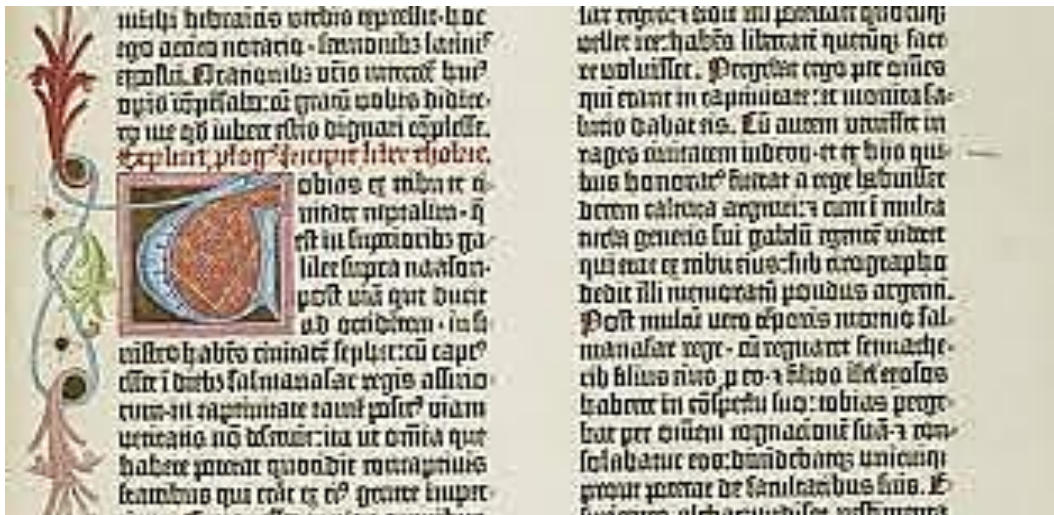 michi hebraicis verbis expressit· hoc
ego accito notario · sermonibꝫ latinis
exposui. Orationibꝫ vr̄is mercedē huiꝰ
opis cōpēsabo: cū gratū vobis didice-
ro me qd̄ iubere estis dignati cōplesse.
Explicit plogꝰ Incipit liber thobie.
Tobias ex tribu et ci-
uitate neptalim · q̄
est in superioribꝫ ga-
lilee supra naason·
post viā que ducit
ad occidentem · in si-
nistro habēs ciuitatē sephet: cū captꝰ
esset ī diebꝫ salmanasar regis assirio-
rum· in captiuitate tamē positꝰ viam
veritatis nō deseruit: ita ut omīa que
habere poterat quottidie concaptiuis
fratribus qui erāt ex eiꝰ genere impir-
vellet ire: habēs libertatē quecūqꝫ face-
re voluisset. Pergebat ergo per om̄es
qui erant in captiuitate: et monita sa-
lutis dabat eis. Cū autem venisset in
rages ciuitatem medorū· et ex hijs qui-
bus honoratꝰ fuerat a rege habuisset
decem talenta argenti: ⁊ cum ī multa
turba generis sui gabelū egentē videret
qui erat ex tribu eius: sub cirographo
dedit illi memoratū pondus argenti.
Post multū vero tēporis mortuo sal-
manasar rege · cū regnaret sennache-
rib filius eius p eo· ⁊ filios isrl exosos
haberet in cōspectu suo: tobias perge-
bat per omnem cognationē suā· ⁊ con-
solabatur eos: diuidebatqꝫ unicuiqꝫ
prout poterat de facultatibus suis. E-